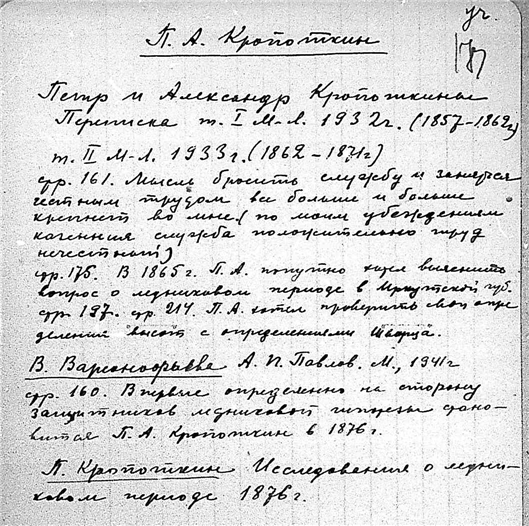 уч.
П. А. Кропоткин
Петр и Александр Кропоткины
Переписка т. I М-Л. 1932г. (1857-1862г)
т. II М-Л. 1933г. (1862-1871г)
стр. 161. Мысль бросить службу и заняться
честным трудом все больше и больше
крепнет во мне (по моим убеждениям
казенная служба положительно труд
нечестный)
стр. 175. В 1865г. П. А. попутно хотел выяснить
вопрос о ледниковом периоде в Иркутской губ.
стр. 197. стр. 214. П. А. хотел проверить свои опре
деления высот с определениями Шварца.
В. Варсонофьева А. П. Павлов. М., 1941г
стр. 160. Впервые определенно на сторону
защитников ледниковой гипотезы стано-
вится П. А. Кропоткин в 1876г.
П. Кропоткин Исследования о ледни-
ковом периоде 1876г.